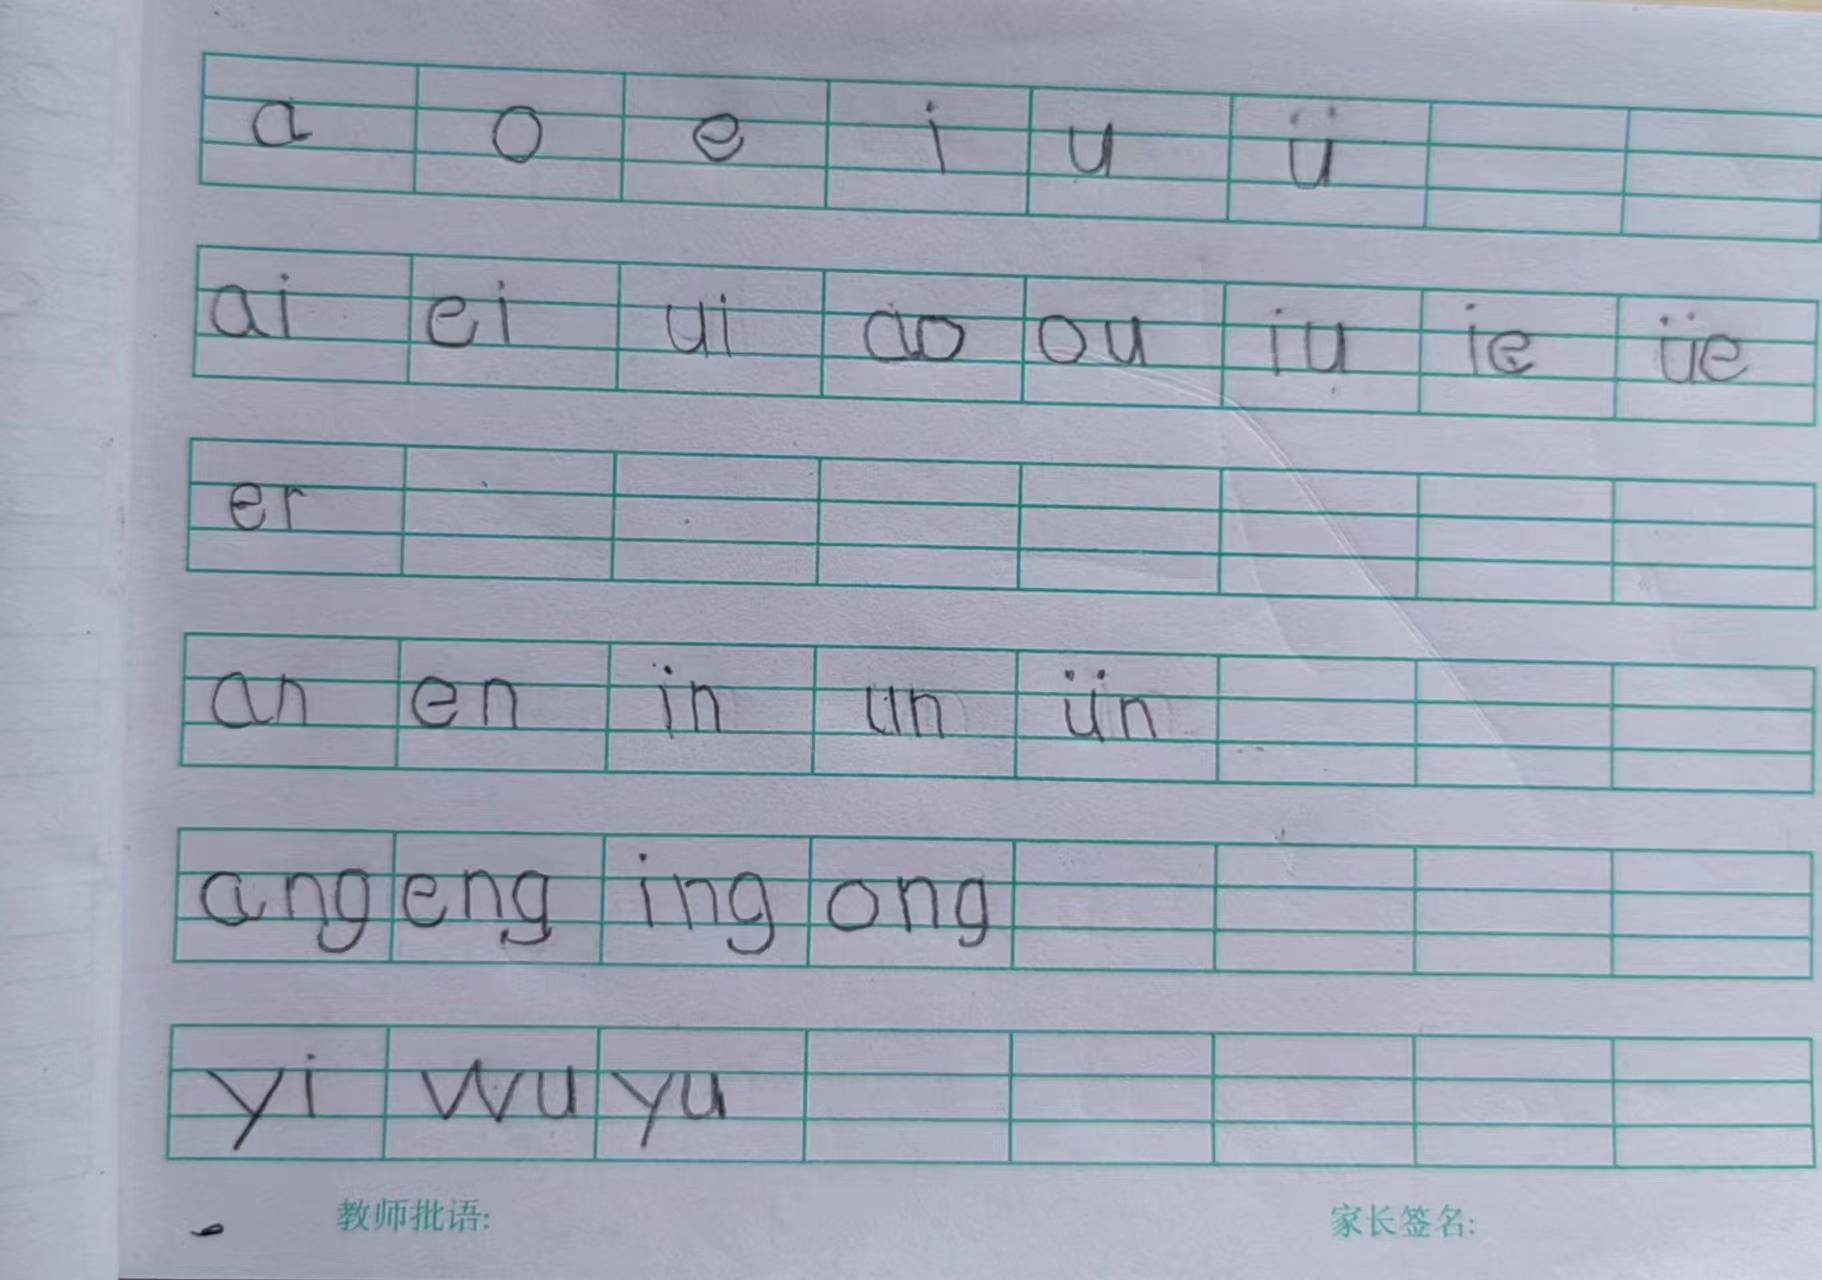 a o e i u ü
ai ei ui ao ou iu ie üe
er
an en in un ün
ang eng ing ong
yi wu yu
教师批语: 家长签名: